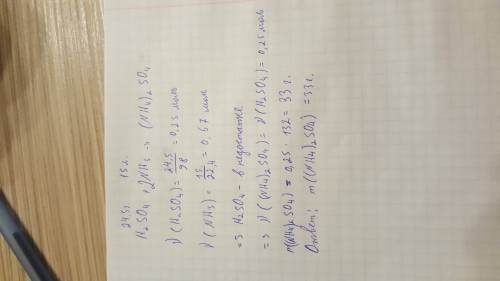 24,5г. 15л.
H₂SO₄ + 2NH₃ → (NH₄)₂SO₄
ν(H₂SO₄) = 24,5/98 = 0,25 моль
ν(NH₃) = 15/22,4 = 0,67 моль
=> H₂SO₄ – в недостатке
=> ν((NH₄)₂SO₄) = ν(H₂SO₄) = 0,25 моль
m(NH₄)₂SO₄) = 0,25 · 132 = 33 г.
Ответ: m((NH₄)₂SO₄) = 33г.